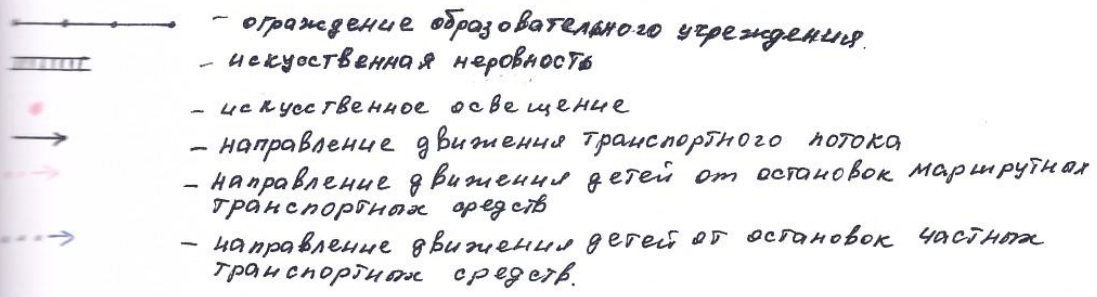 - ограждение образовательного учреждения.
- искуственная неровность
- искусственное освещение
- направление движения транспортного потока
- направление движения детей от остановок маршрутных
транспортных средств
- направление движения детей от остановок частных
транспортных средств.